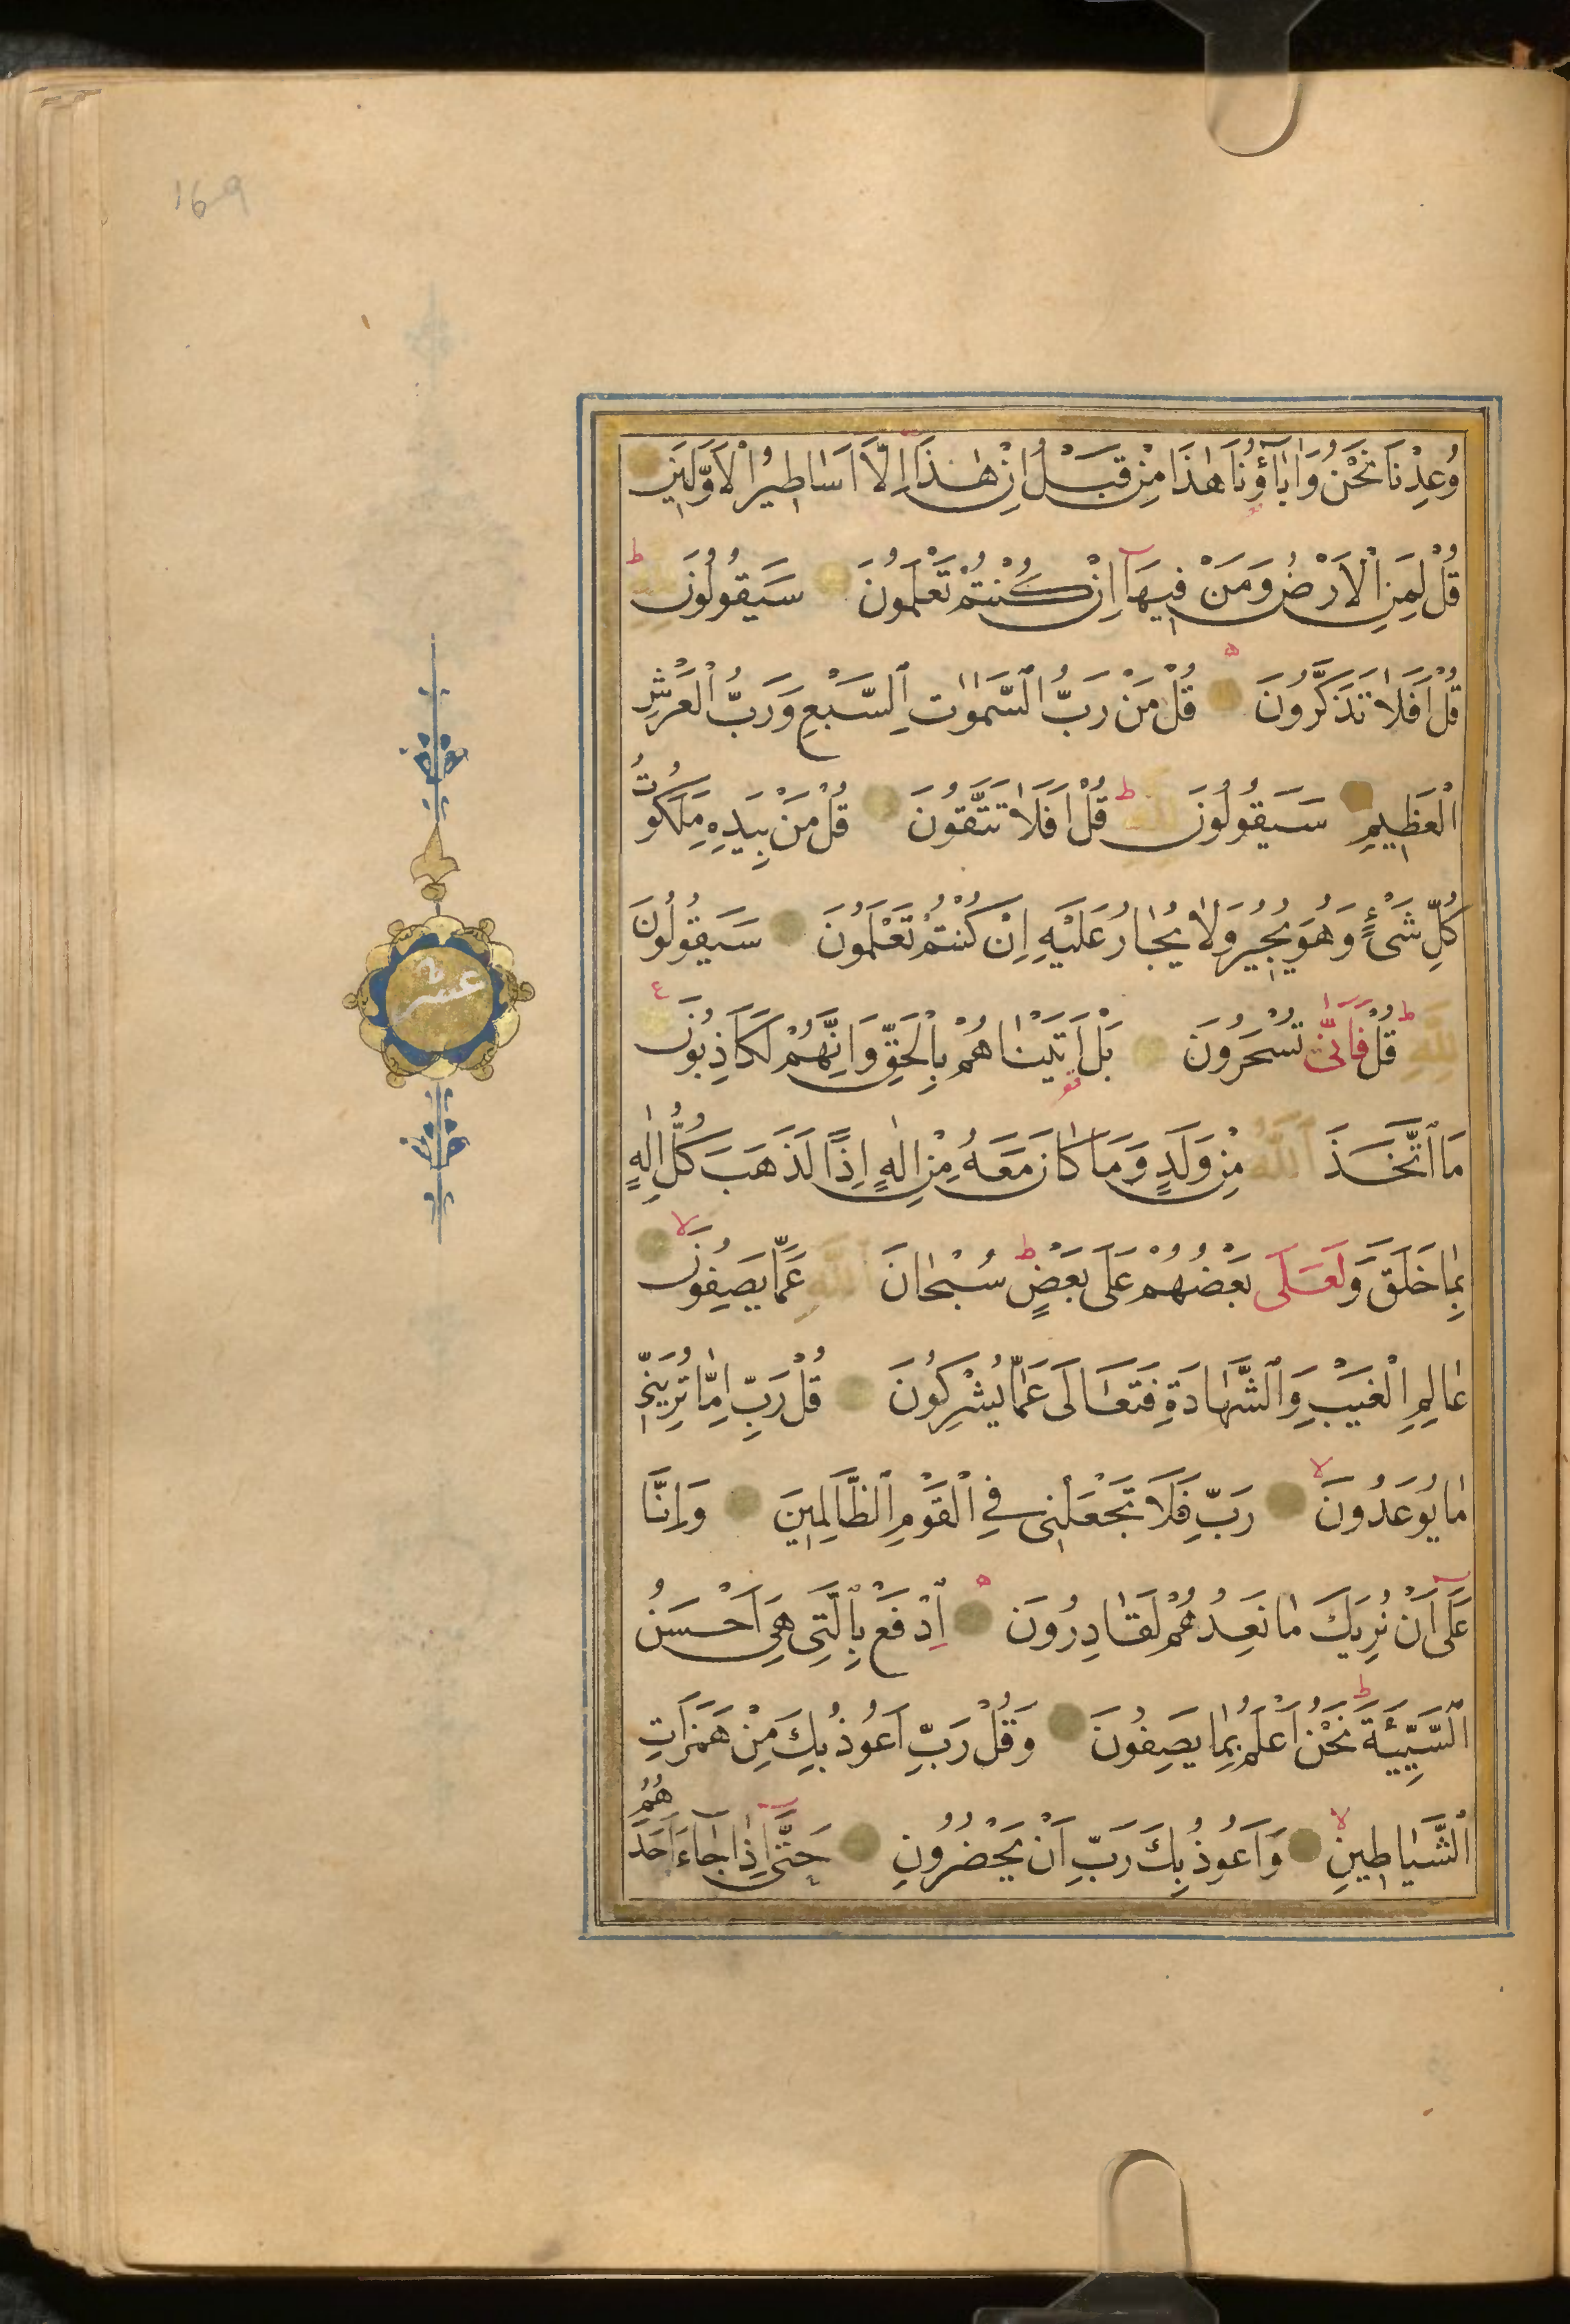 169
وُعِدْنَا نَحْنُ وَاٰبَآؤُنَا هٰذَا مِنْ قَبْلُ اِنْ هٰذَا اِلَّا اَسَاطِيرُ الْاَوَّلِينَ
قُلْ لِمَنِ الْاَرْضُ وَمَنْ فِيهَا اِنْ كُنْتُمْ تَعْلَمُونَ سَيَقُولُونَ لِلّٰهِ ط
قُلْ اَفَلَا تَذَكَّرُونَ ه قُلْ مَنْ رَبُّ السَّمٰوَاتِ السَّبْعِ وَرَبُّ الْعَرْشِ
الْعَظِيمِ سَيَقُولُونَ لِلّٰهِ ط قُلْ اَفَلَا تَتَّقُونَ قُلْ مَنْ بِيَدِهِ مَلَكُوتُ
كُلِّ شَىْءٍ وَهُوَ يُجِيرُ وَلَا يُجَارُ عَلَيْهِ اِنْ كُنْتُمْ تَعْلَمُونَ سَيَقُولُونَ
لِلّٰهِ ط قُلْ فَاَنّٰى تُسْحَرُونَ بَلْ اَتَيْنَاهُمْ بِالْحَقِّ وَاِنَّهُمْ لَكَاذِبُونَ ع
مَا اتَّخَذَ اللّٰهُ مِنْ وَلَدٍ وَمَا كَانَ مَعَهُ مِنْ اِلٰهٍ اِذًا لَذَهَبَ كُلُّ اِلٰهٍ
بِمَا خَلَقَ وَلَعَلٰى بَعْضُهُمْ عَلٰى بَعْضٍ ط سُبْحَانَ اللّٰهِ عَمَّا يَصِفُونَ لا
عَالِمِ الْغَيْبِ وَالشَّهَادَةِ فَتَعَالٰى عَمَّا يُشْرِكُونَ قُلْ رَبِّ اِمَّا تُرِيَنِّى
مَا يُوعَدُونَ لا رَبِّ فَلَا تَجْعَلْنِى فِى الْقَوْمِ الظَّالِمِينَ وَاِنَّا
عَلٰى اَنْ نُرِيَكَ مَا نَعِدُهُمْ لَقَادِرُونَ ه اِدْفَعْ بِالَّتِى هِىَ اَحْسَنُ
السَّيِّئَةَ ط نَحْنُ اَعْلَمُ بِمَا يَصِفُونَ وَقُلْ رَبِّ اَعُوذُ بِكَ مِنْ هَمَزَاتِ
الشَّيَاطِينِ لا وَاَعُوذُ بِكَ رَبِّ اَنْ يَحْضُرُونِ حَتّٰى اِذَا جَاءَ اَحَدَهُمُ
عشر